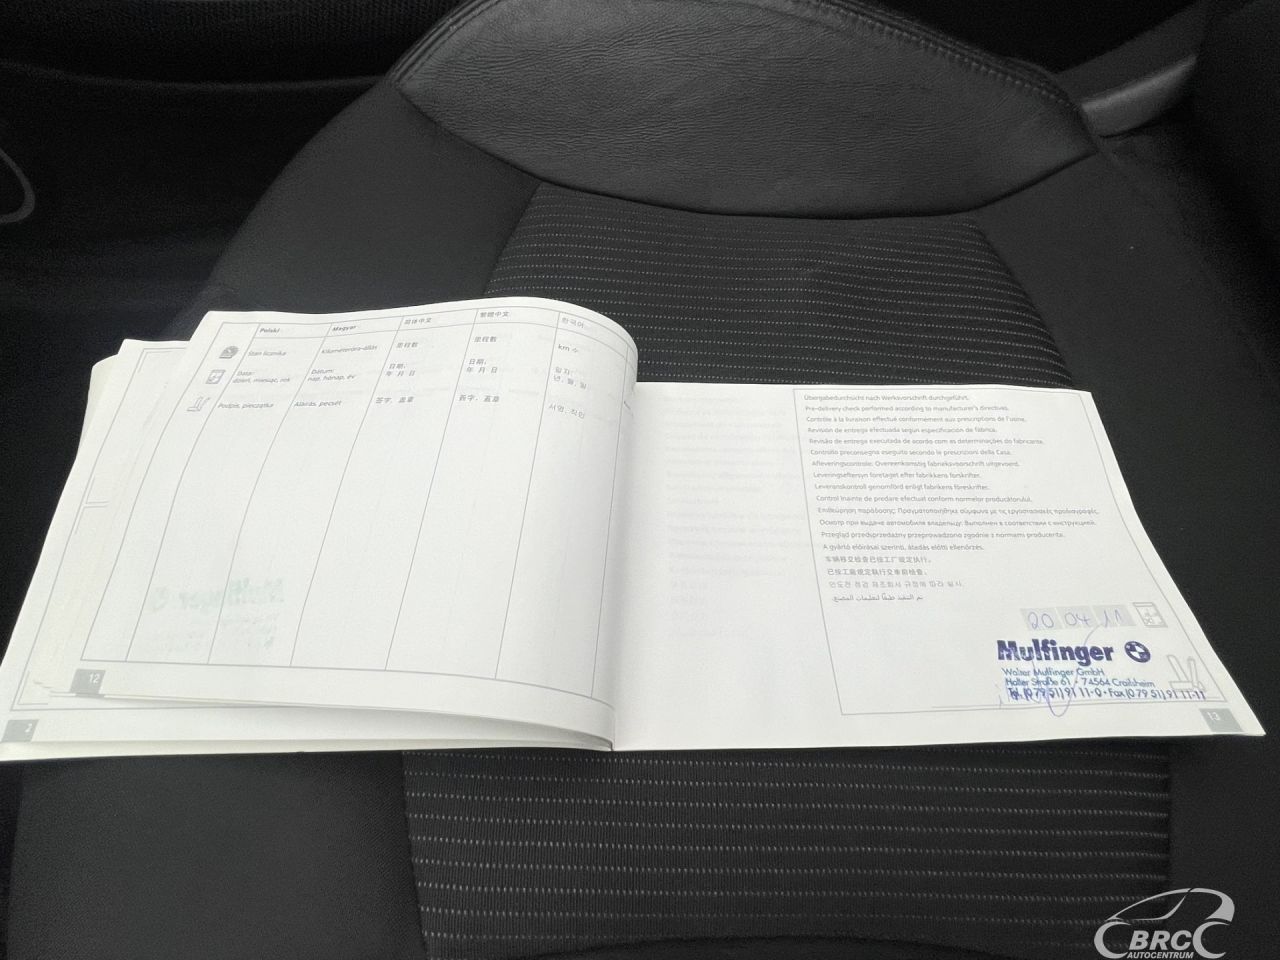 Polski Magyar 简体中文 繁體中文 한국어
Stan licznika Kilométeróra-állás 里程数 里程數 km 수
Data: Dátum: 日期, 日期, 일자:
dzień, miesiąc, rok nap, hónap, év 年 月 日 年 月 日 년, 월, 일
Podpis, pieczątka Aláírás, pecsét 签字, 盖章 簽字, 蓋章 서명, 직인
12
2
Übergabedurchsicht nach Werksvorschrift durchgeführt.
Pre-delivery check performed according to manufacturer's directives.
Contrôle à la livraison effectué conformément aux prescriptions de l'usine.
Revisión de entrega efectuada según especificación de fábrica.
Revisão de entrega executada de acordo com as determinações do fabricante.
Controllo preconsegna eseguito secondo le prescrizioni della Casa.
Afleveringscontrole: Overeenkomstig fabrieksvoorschrift uitgevoerd.
Leveringseftersyn foretaget efter fabrikkens forskrifter.
Leveranskontroll genomförd enligt fabrikens föreskrifter.
Control înainte de predare efectuat conform normelor producătorului.
Επιθεώρηση παράδοσης: Πραγματοποιήθηκε σύμφωνα με τις εργοστασιακές προδιαγραφές.
Осмотр при выдаче автомобиля владельцу: Выполнен в соответствии с инструкцией.
Przegląd przedsprzedażny przeprowadzono zgodnie z normami producenta.
A gyártó előírásai szerinti, átadás előtti ellenőrzés.
车辆移交检查已按工厂规定执行。
已按工廠規定執行交車前檢查。
인도전 점검 제조회사 규정에 따라 실시.
تم التنفيذ طبقًا لتعليمات المصنع.
20 04 11
Mulfinger
Walter Mulfinger GmbH
Haller Straße 61 · 74564 Crailsheim
Tel. (0 79 51) 91 11-0 · Fax (0 79 51) 91 11-11
13
BRC
AUTOCENTRUM